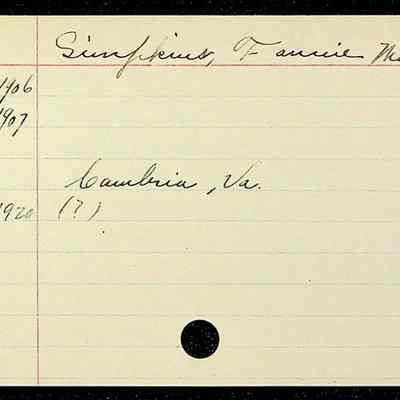 Simpkins, Fannie
1906
1907
Cambria, Va.
1920 (?)